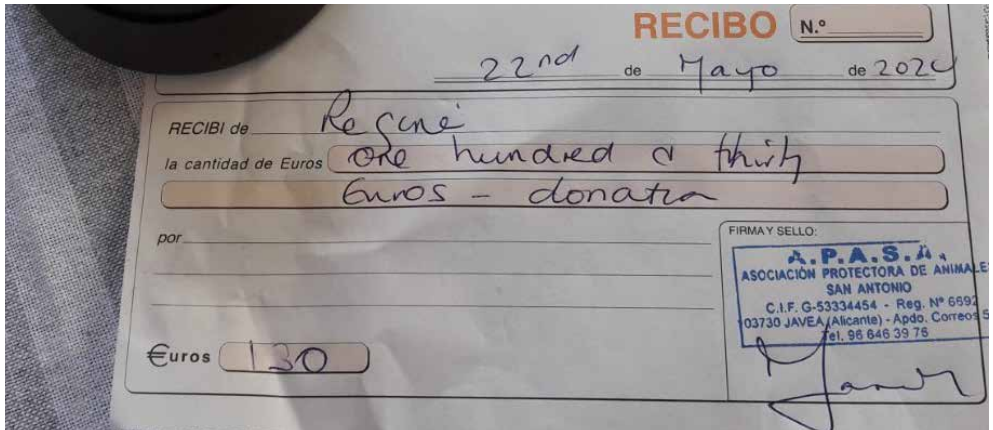 RECIBO N.º
22nd de Mayo de 2024
RECIBI de Regine
la cantidad de Euros One hundred & thirty
Euros - donation
por
FIRMA Y SELLO:
A.P.A.S.A.
ASOCIACIÓN PROTECTORA DE ANIMALES
SAN ANTONIO
C.I.F. G-53334454 - Reg. Nº 6692
03730 JAVEA (Alicante) - Apdo. Correos 5
Tel. 96 646 39 76
€uros 130